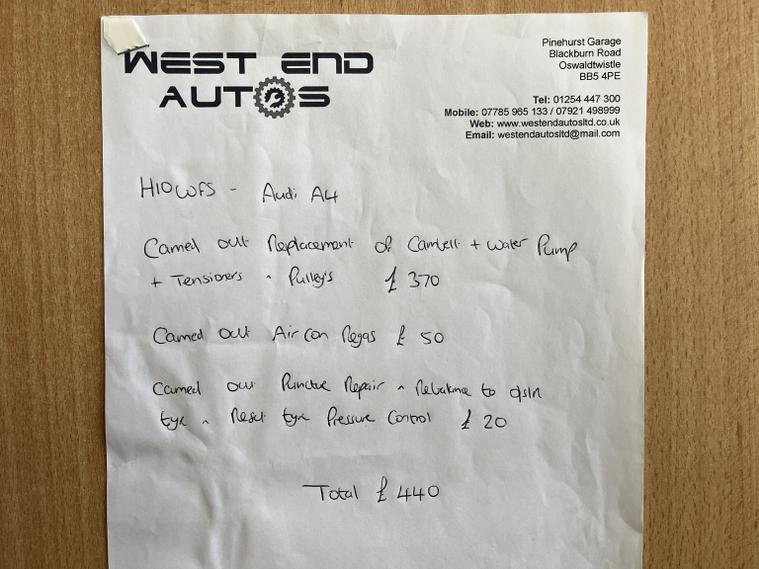 WEST END
AUTOS
Pinehurst Garage
Blackburn Road
Oswaldtwistle
BB5 4PE
Tel: 01254 447 300
Mobile: 07785 965 133 / 07921 498999
Web: www.westendautosltd.co.uk
Email: westendautosltd@mail.com
H10WFS - Audi A4
Carried out Replacement of Cambelt + Water Pump
+ Tensioners + Pulley's £ 370
Carried out Air Con Regas £ 50
Carried out Puncture Repair + Rebalance to
tyre + Reset tyre Pressure Control £ 20
Total £ 440